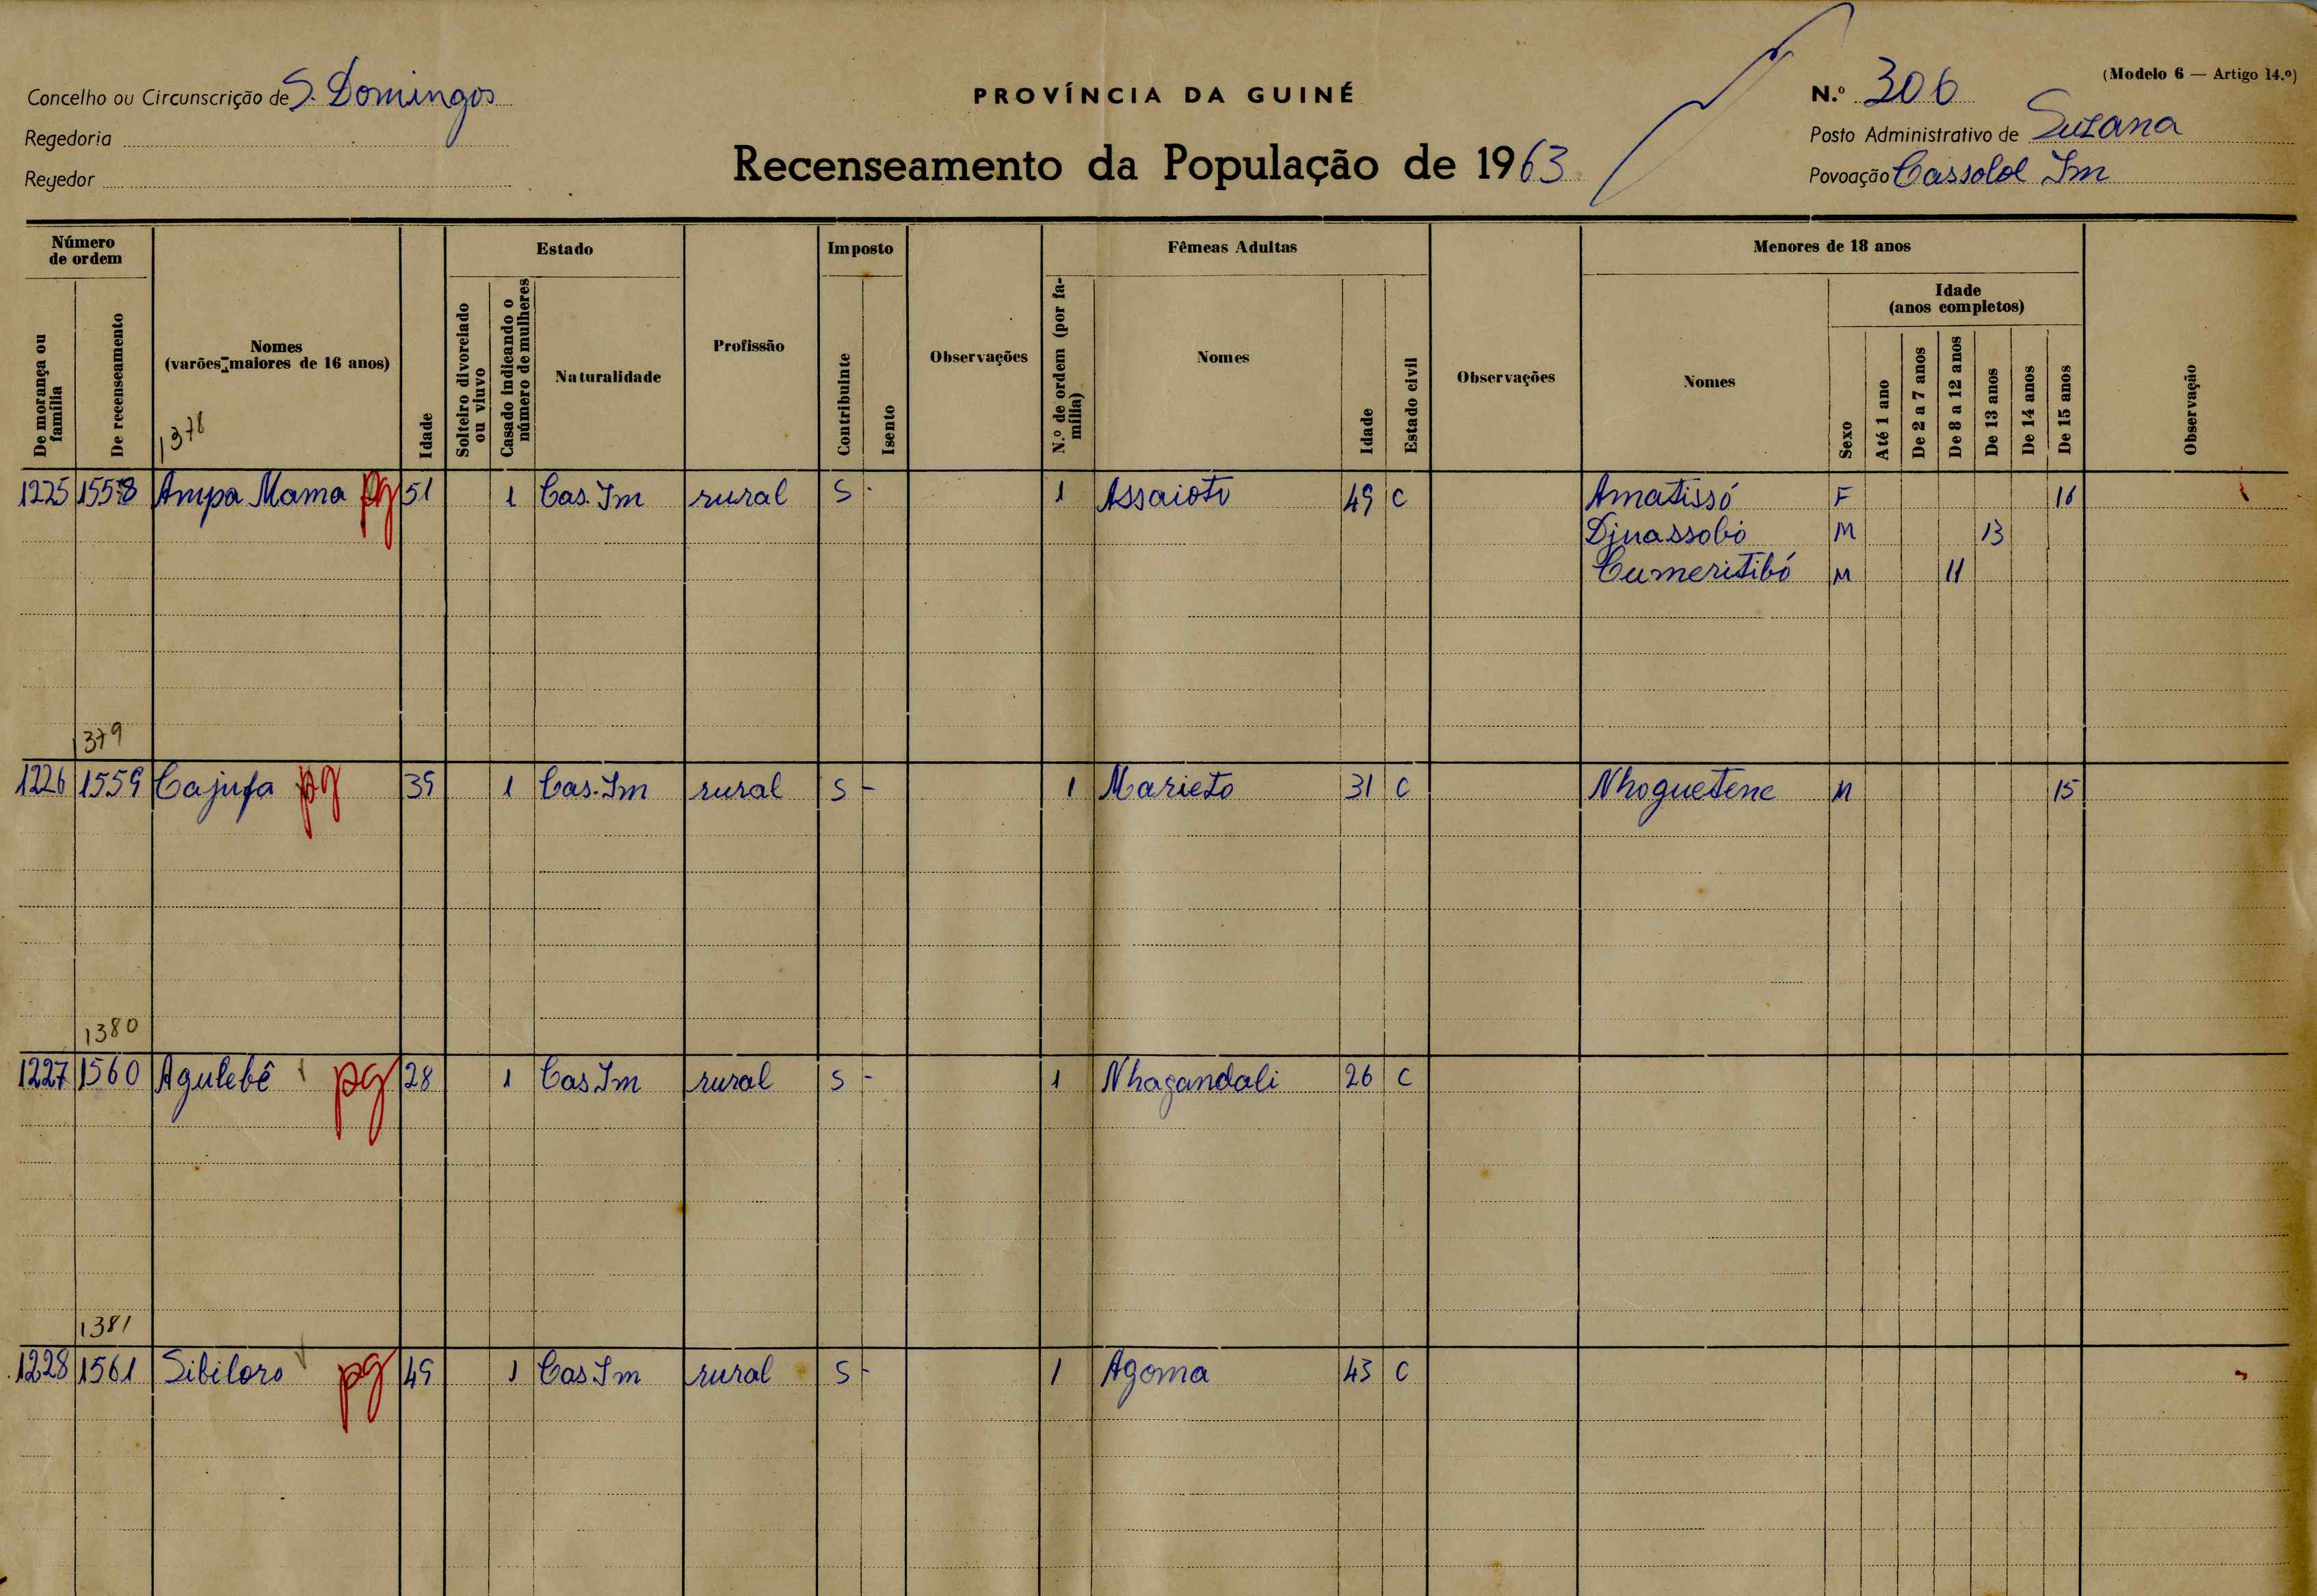 (Modelo 6 — Artigo 14.º)
Concelho ou Circunscrição de S. Domingos
PROVÍNCIA DA GUINÉ
N.º 306
Regedoria
Posto Administrativo de Suzana
Recenseamento da População de 1963
Regedor
Povoação Cassolol Im
Número de ordem
De morança ou família
De recenseamento
Nomes
(varões maiores de 16 anos)
1378
Idade
Estado
Solteiro divorciado ou viuvo
Casado indicando o número de mulheres
Naturalidade
Profissão
Imposto
Contribuinte
Isento
Observações
Fêmeas Adultas
N.º de ordem (por família)
Nomes
Idade
Estado civil
Observações
Menores de 18 anos
Nomes
Sexo
Idade
(anos completos)
Até 1 ano
De 2 a 7 anos
De 8 a 12 anos
De 13 anos
De 14 anos
De 15 anos
Observação
1225 1558 Ampa Mama pg 51 1 Cas. Im rural S - 1 Assaioti 49 C Amatissó F 16
Djuassobó M 13
Cumeritibó M 11
1379
1226 1559 Cajufa pg 39 1 Cas. Im rural S - 1 Marieto 31 C Nhoguetene M 15
1380
1227 1560 Agulebê pg 28 1 Cas Im rural S - 1 Nhagandali 26 C
1381
1228 1561 Sibiloro pg 49 1 Cas Im rural S - 1 Agoma 43 C